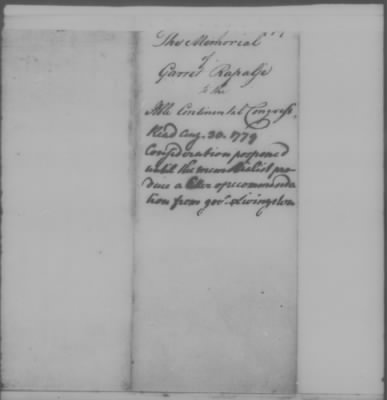 The Memorial
of
Garret Rapalje
to the
Hble Continental Congress,
Read Aug. 30. 1779
Consideration postponed
until the memorialist pro-
duce a letter of recommenda
tion from govr. Livingston